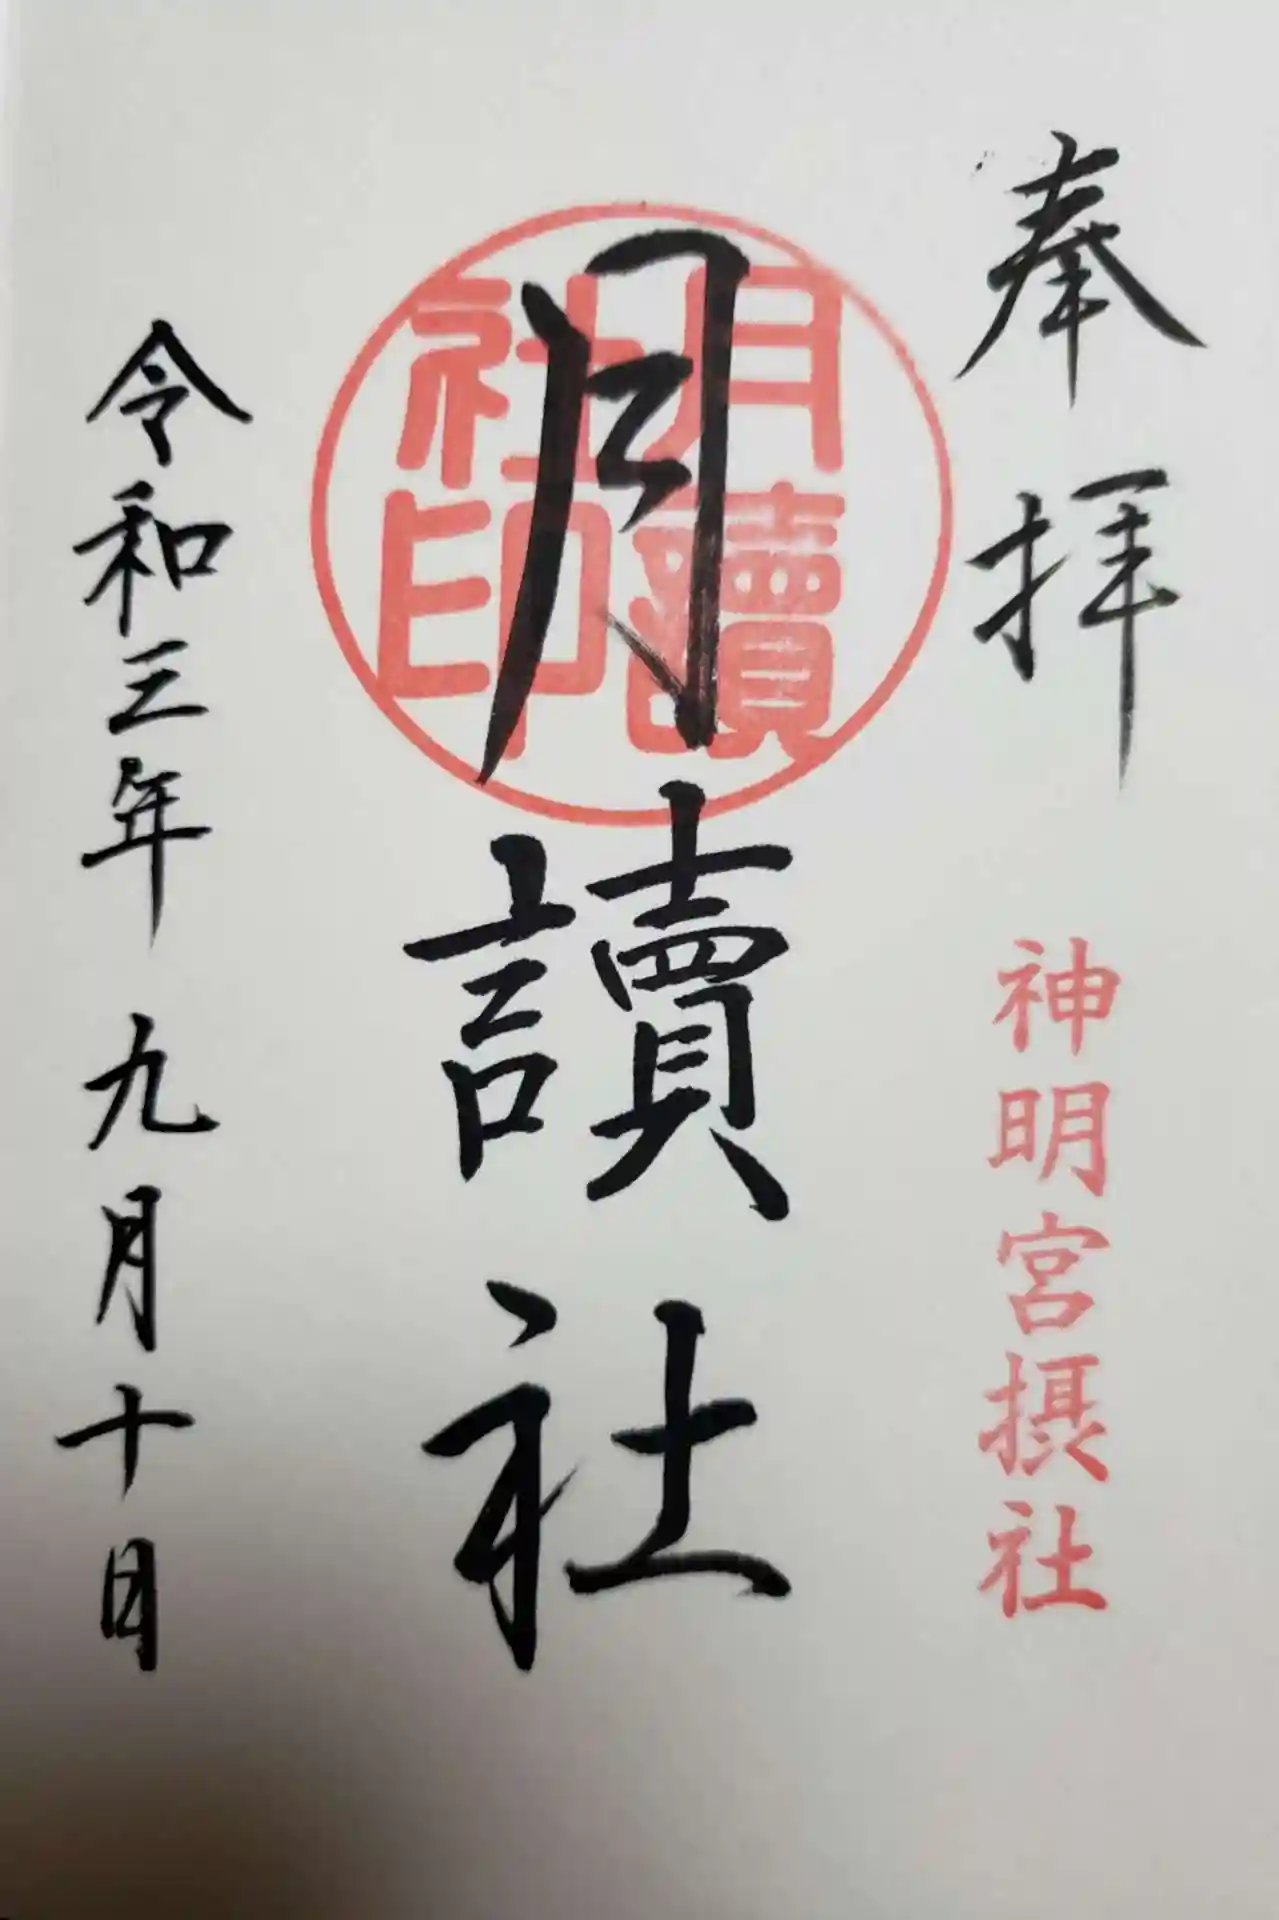 奉拝
神明宮摂社
月讀社
月讀
社印
令和三年 九月十日